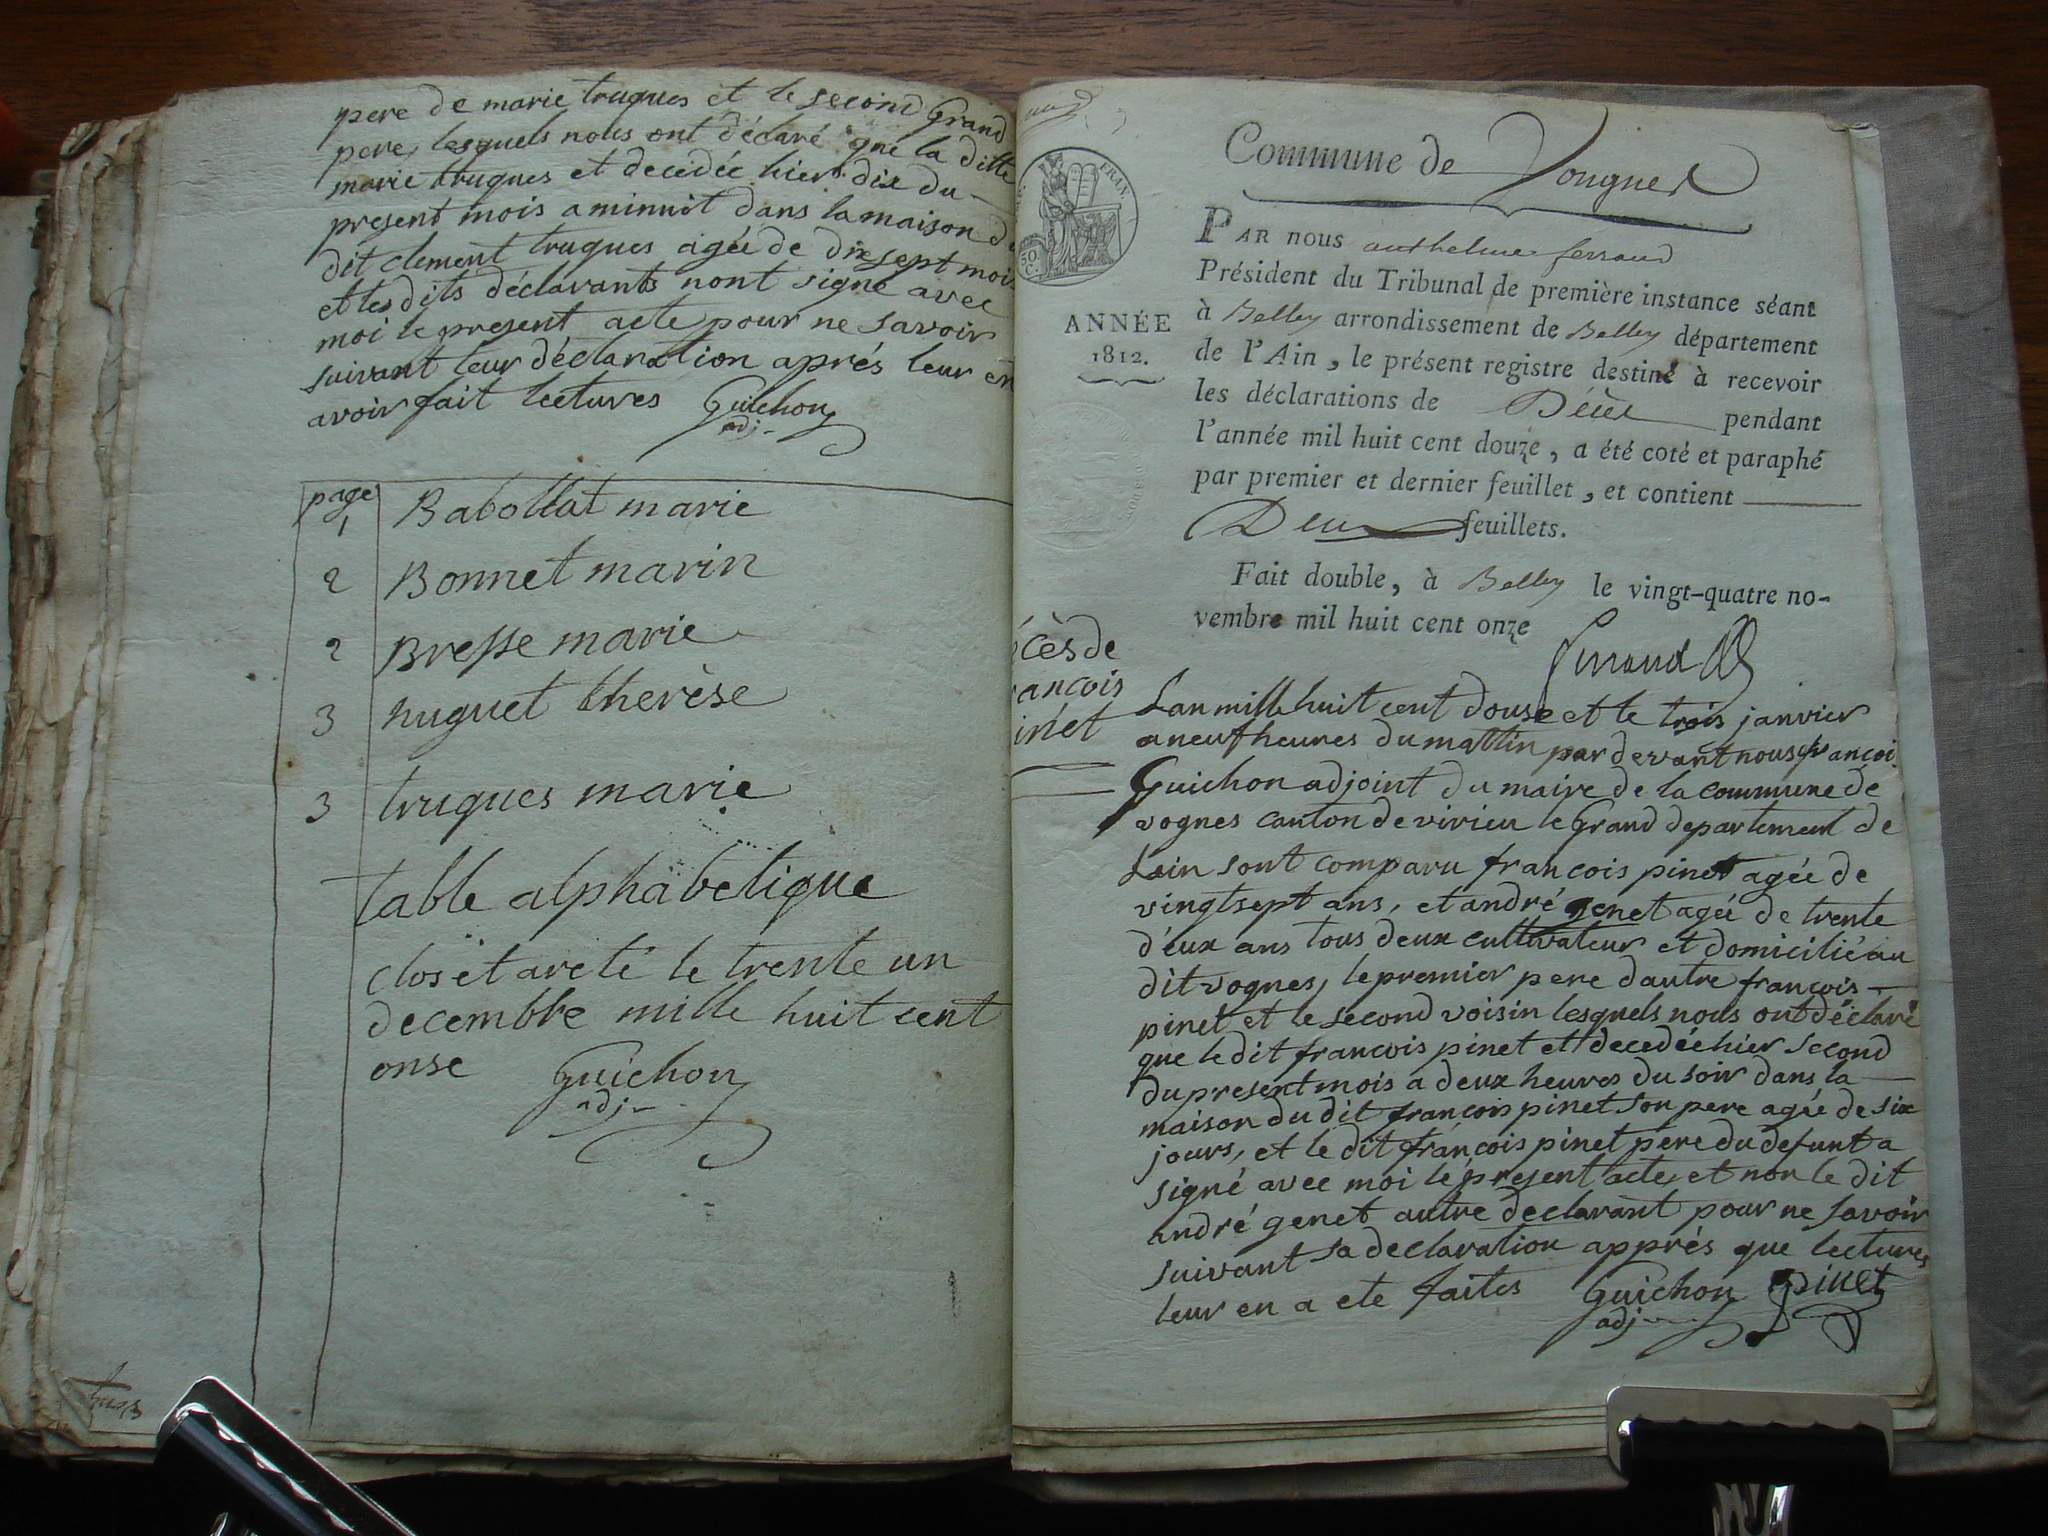 pere de marie truques et le second Grand
pere, lesquels nous ont déclaré que la ditte
marie truques et decedée hier dix du
present mois a minuit dans la maison du
dit clement truques agée de dix sept mois
et les dits déclarants nont signé avec
moi le present acte pour ne savoir
suivant leur déclaration aprés leur en
avoir fait lectures Guichon
adj
page
1 Babollat marie
2 Bonnet marin
2 Bresse marie
3 huguet therèse
3 truques marie
table alphabetique
clos et areté le trente un
decembre mille huit cent
onse Guichon
adj
Commune de Vougnes
FRAN.
50.
C.
ANNÉE
1812.
PAR nous anthelme ferrand
Président du Tribunal de première instance séant
à Belley arrondissement de Belley département
de l'Ain, le présent registre destiné à recevoir
les déclarations de Décès pendant
l'année mil huit cent douze, a été coté et paraphé
par premier et dernier feuillet, et contient
Deux feuillets.
Fait double, à Belley le vingt-quatre no-
vembre mil huit cent onze
ferrand
écès de
ançois
inet
Lan mille huit cent douse et le trois janvier
a neuf heures du mattin par devant nous françoi
Guichon adjoint du maire de la commune de
vognes canton de virieu le Grand departement de
Lain sont comparu francois pinet agée de
vingt sept ans, et andré genet agée de trente
d'eux ans tous deux cultivateur et domicilié au
dit vognes, le premier pere dautre françois
pinet et le second voisin lesquels nous ont déclaré
que le dit francois pinet et decedée hier second
du present mois a deux heures du soir dans la
maison du dit françois pinet son pere agée de six
jours, et le dit françois pinet pere du defunt a
signé avec moi le present acte et non le dit
andré genet autre declarant pour ne savoir
suivant sa declaration apprés que lectures
leur en a ete faites Guichon pinet
adj